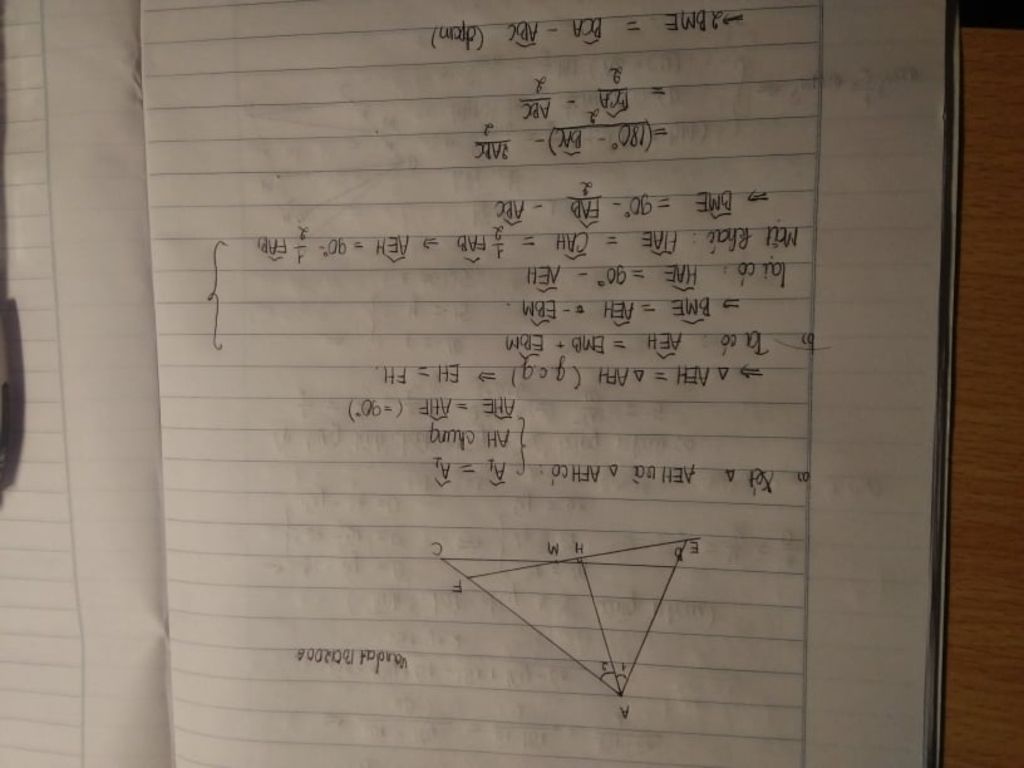 A
1 2
F
E B H M C
a) Xét Δ AEH và Δ AFH có: { Â₁ = Â₂
AH chung
AHE = AHF (=90°)
⇒ Δ AEH = Δ AFH (g c g) ⇒ EH = FH.
b) Ta có: AEH = EMB + EBM
⇒ BME = AEH - EBM.
lại có: HAE = 90° - AEH
Mặt khác: HAE = CAH = 1/2 FAB ⇒ AEH = 90° - 1/2 FAB
⇒ BME = 90° - FAB/2 - ABC
= (180° - BAC)/2 - 2ABC/2
= BCA/2 - ABC/2
⇒ 2BME = BCA - ABC (đpcm)